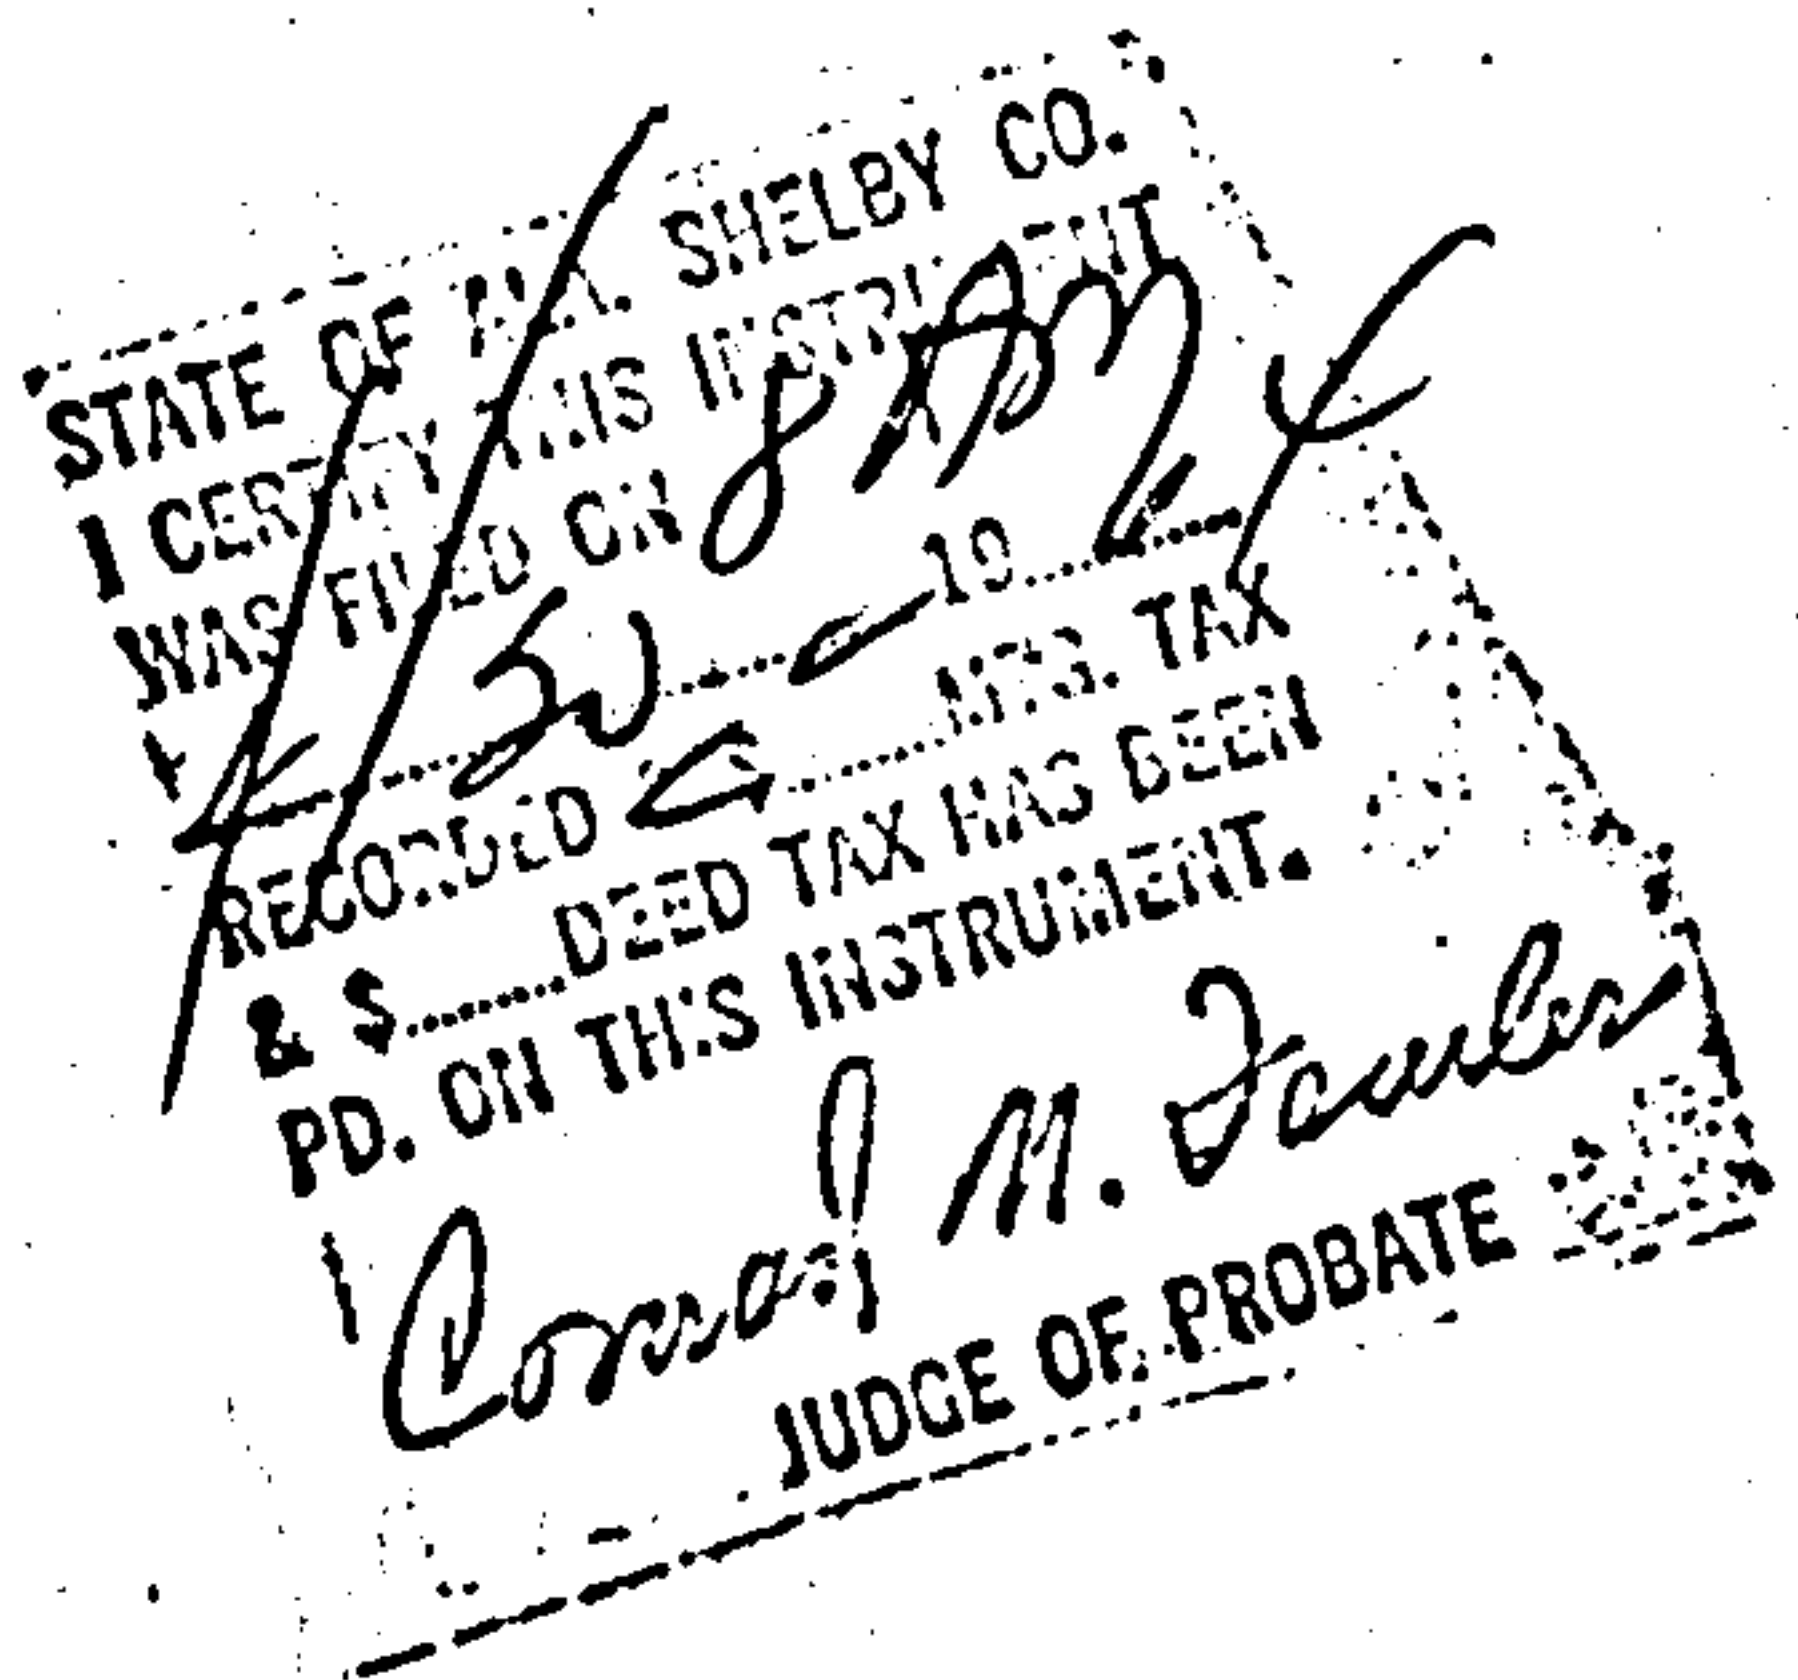 STATE OF ALA. SHELBY CO.
I CERTIFY THIS INSTRUMENT
WAS FILED ON 8 AM
19
RECORDED MTG. TAX
& $ DEED TAX HAS BEEN
PD. ON THIS INSTRUMENT.
Conrad M. Fowler
JUDGE OF PROBATE